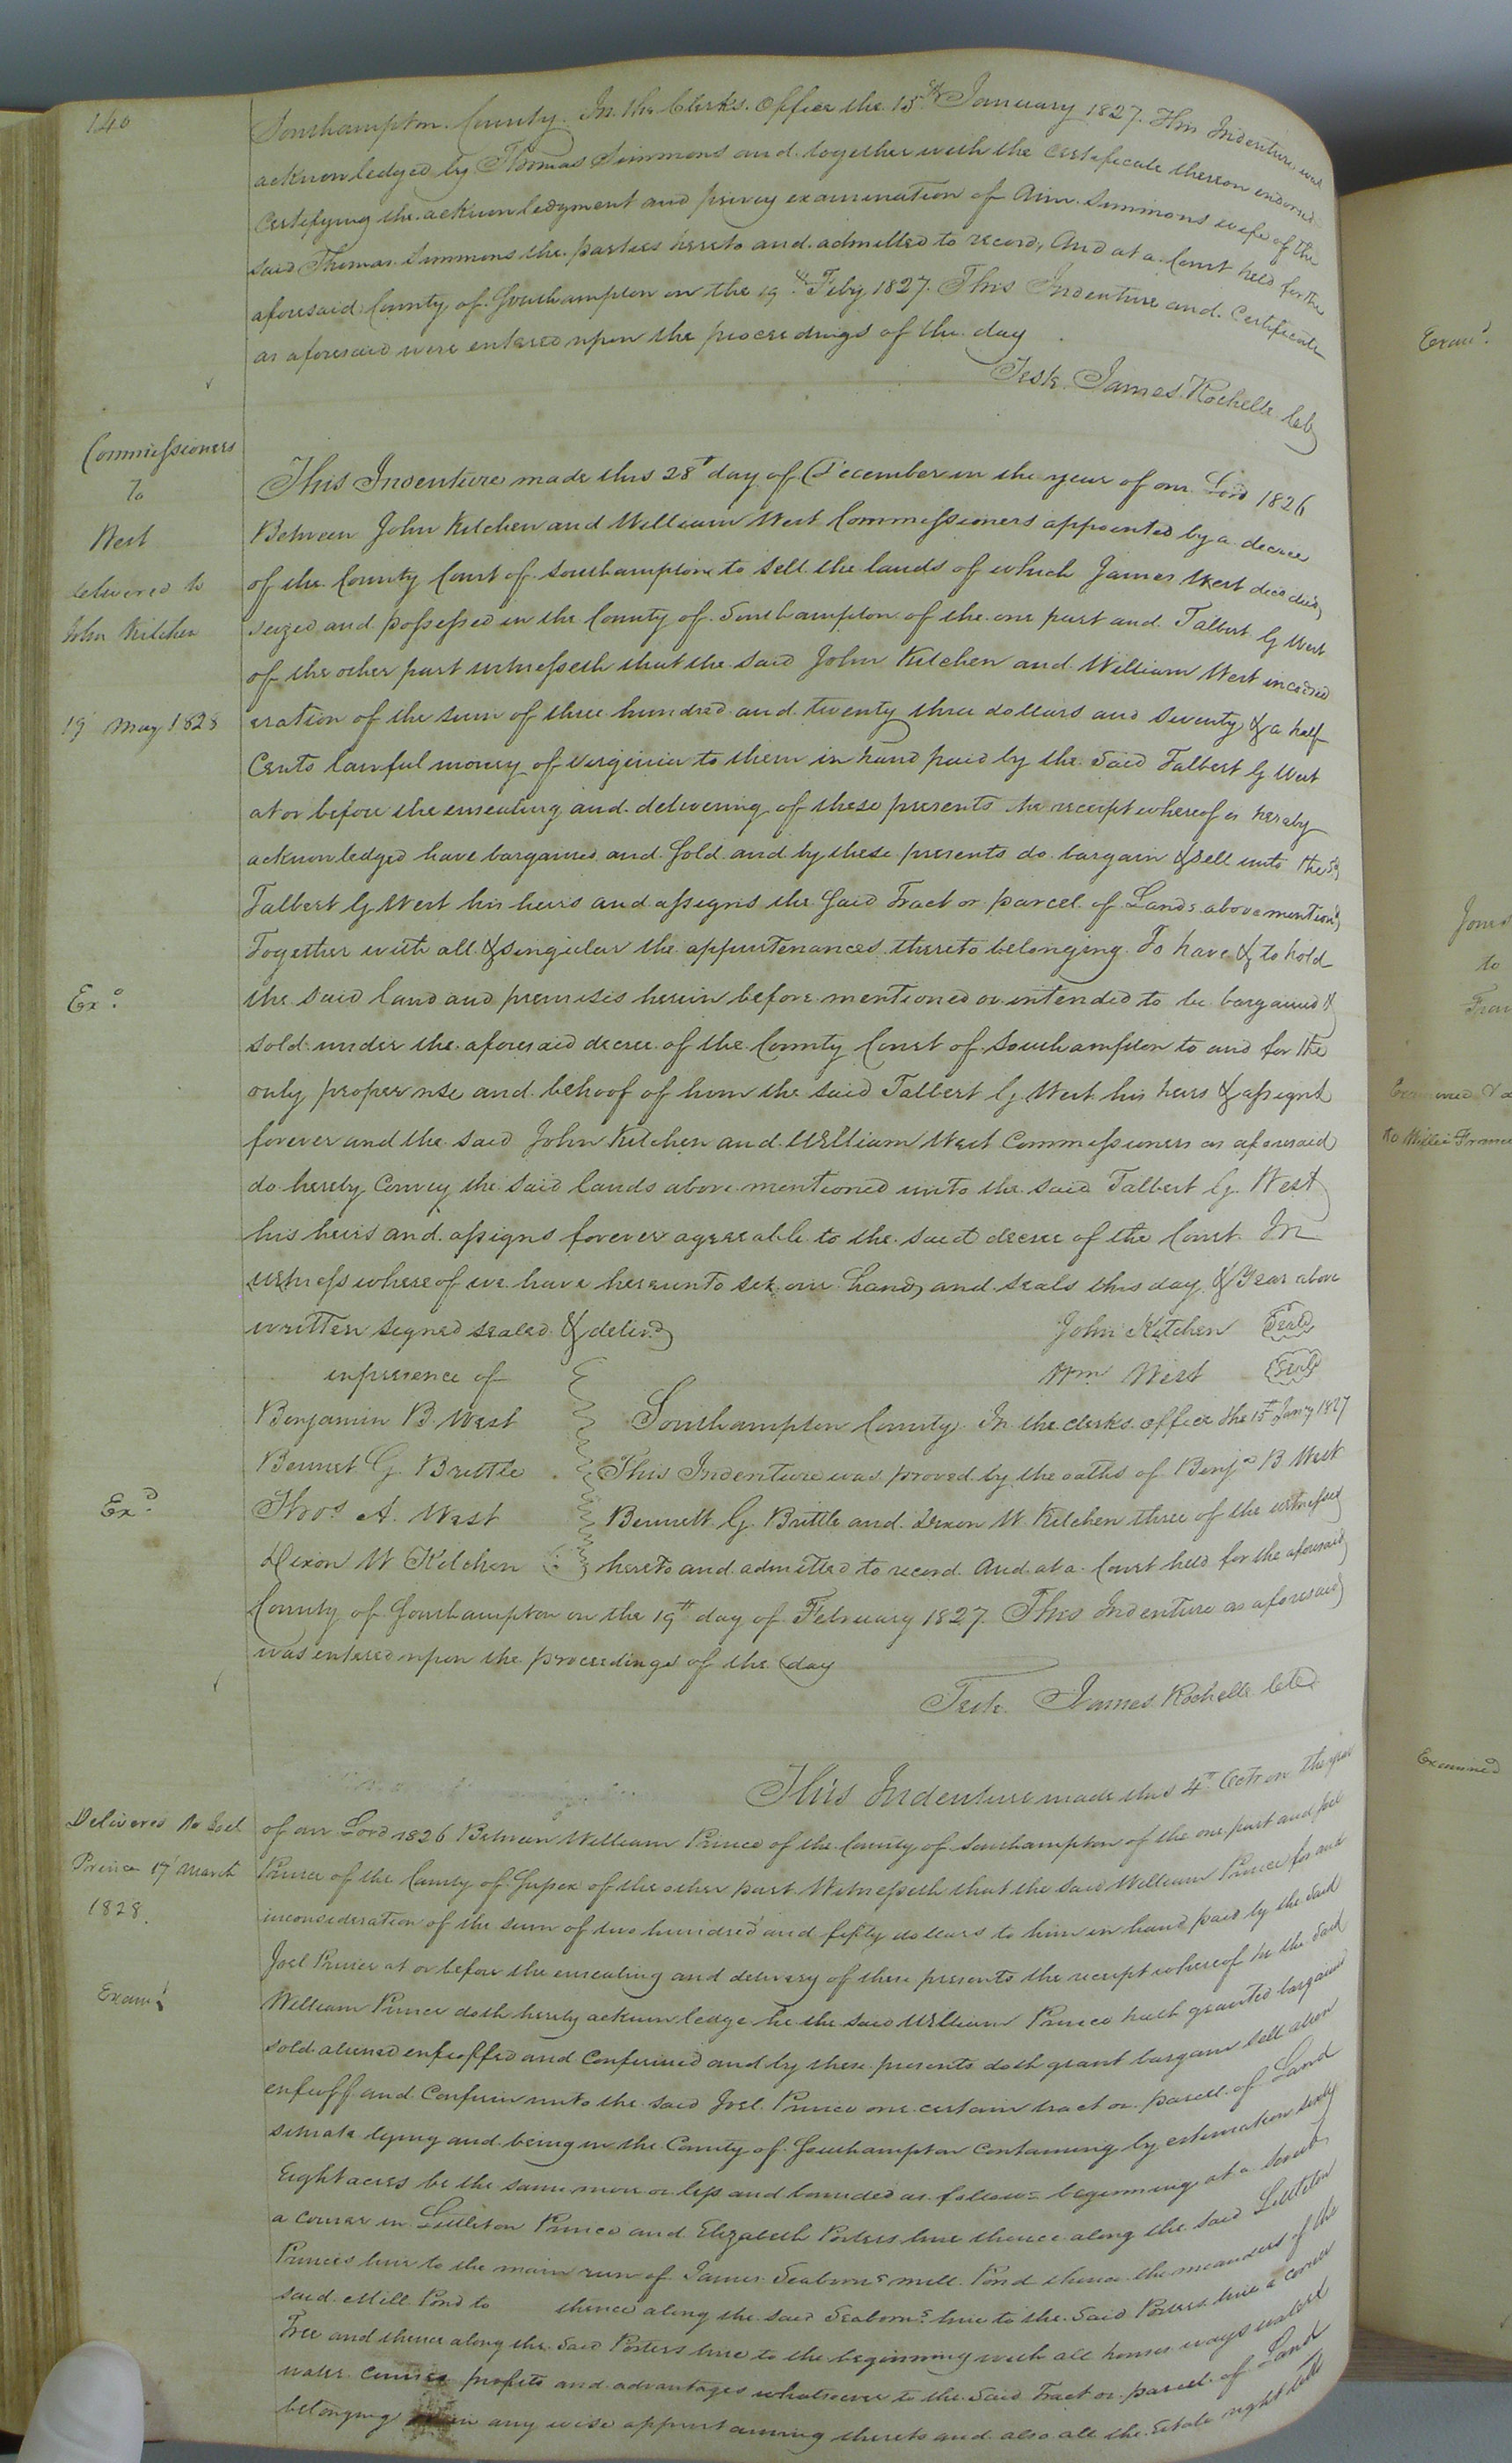 140
Southampton County. In the Clerks. Office the 15th January 1827. This Indenture was
acknowledged by Thomas Simmons and together with the certificate thereon endorsed
Certifying the acknowledgment and privey examination of Ann Simmons wife of the
said Thomas Simmons the parties hereto and admitted to record, And at a Court held for the
aforesaid County of Southampton on the 19th Feby 1827. This Indenture and Certificate
as aforesaid were entered upon the proceedings of the day
Teste. James Rochelle
Commissioners
To
West
delivered to
John Kitchen
19 May 1828
This Indenture made this 28th day of December in the year of our Lord 1826
Between John Kitchen and William West Commissioners appointed by a decree
of the County Court of Southampton to sell the lands of which James West
seized and possessed in the County of Southampton of the one part and Talbert G West
of the other part witnesseth that the said John Kitchen and William West in consid
eration of the sum of three hundred and twenty three dollars and seventy & a half
Cents lawful money of Virginia to them in hand paid by the said Talbert G West
at or before the ensealing and delivering of these presents the receipt whereof is hereby
acknowledged have bargained and Sold and by these presents do bargain & sell unto the sd
Talbert G West his heirs and assigns the Said Tract or parcel of Lands above mentiond
Together with all & singular the appurtenances thereto belonging. To have & to hold
Exd.
the said land and premises herein before mentioned or intended to be bargained &
sold under the aforesaid decree of the County Court of Southampton to and for the
only proper use and behoof of him the said Talbert G West his heirs & assigns
forever and the said John Kitchen and William West Commissioners as aforesaid
do hereby Convey the said lands above mentioned unto the said Talbert G. West
his heirs and assigns forever agreeable to the said decree of the Court. In
witness whereof we have hereunto set our hands and seals this day & year above
written signed sealed & delivd
in presence of
John Kitchen Seal
Wm West Seal
Benjamin B. West
Bennet G. Brittle
Thos. A. West
Dixon W Kitchen
Southampton County. In the clerks. office the 15th Jany 1827
This Indenture was proved by the oaths of Benja B West
Bennett G. Brittle and Dixon W. Kitchen three of the witnesses
hereto and admitted to record. And at a Court held for the aforesaid
Exd.
County of Southampton on the 19th day of February 1827. This Indenture as aforesaid
was entered upon the proceedings of the day
Teste. James Rochelle
Delivered to Joel
Prince 17 March
1828.
Examd
This Indenture made this 4th the year
of our Lord 1826 Between William Prince of the County of Southampton of the one part and Joel
Prince of the County of Sussex of the other part Witnesseth that the said William Prince for and
in consideration of the sum of two hundred and fifty dollars to him in hand paid by the said
Joel Prince at or before the ensealing and delivery of these presents the receipt whereof he the said
William Prince doth hereby acknowledge he the said William Prince hath granted bargained
sold aliened enfeoffed and Confirmed and by these presents doth grant bargain sell alien
enfeoff and Confirm unto the said Joel Prince one certain tract or parcel of Land
situate lying and being in the County of Southampton Containing by estimation sixty
Eight acres be the same more or less and bounded as follows beginning at a
a corner in Littleton Prince and Elizabeth Porters line thence along the said Littleton
Princes line to the main run of James Seaborns mill Pond thence the meanders of the
said Mill Pond to thence along the said Seaborns line to the said Porters line a corner
Tree and thence along the said Porters line to the beginning with all houses ways waters
water courses profits and advantages whatsoever to the said Tract or parcel of Land
belonging in any wise appertaining thereto and also all the Estate right title
Examd.
Jones
to
Examined
to Francis
Examined